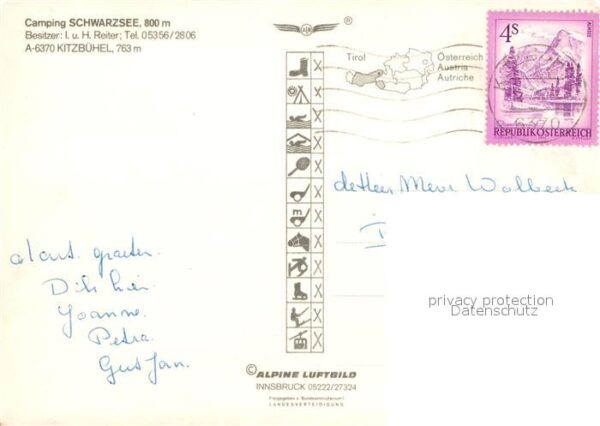 Camping SCHWARZSEE, 800 m
Besitzer: I. u. H. Reiter; Tel. 05356/2806
A-6370 KITZBÜHEL, 763 m
®
Tirol
Österreich
Austria
Autriche
4S
REPUBLIK ÖSTERREICH
m
de Heer Mevr Walbeck
privacy protection
Datenschutz
groeten
Joanne.
Petra
Gert Jan.
© ALPINE LUFTBILD
INNSBRUCK 05222/27324
Freigegeben v. Bundesministerium f.
LANDESVERTEIDIGUNG